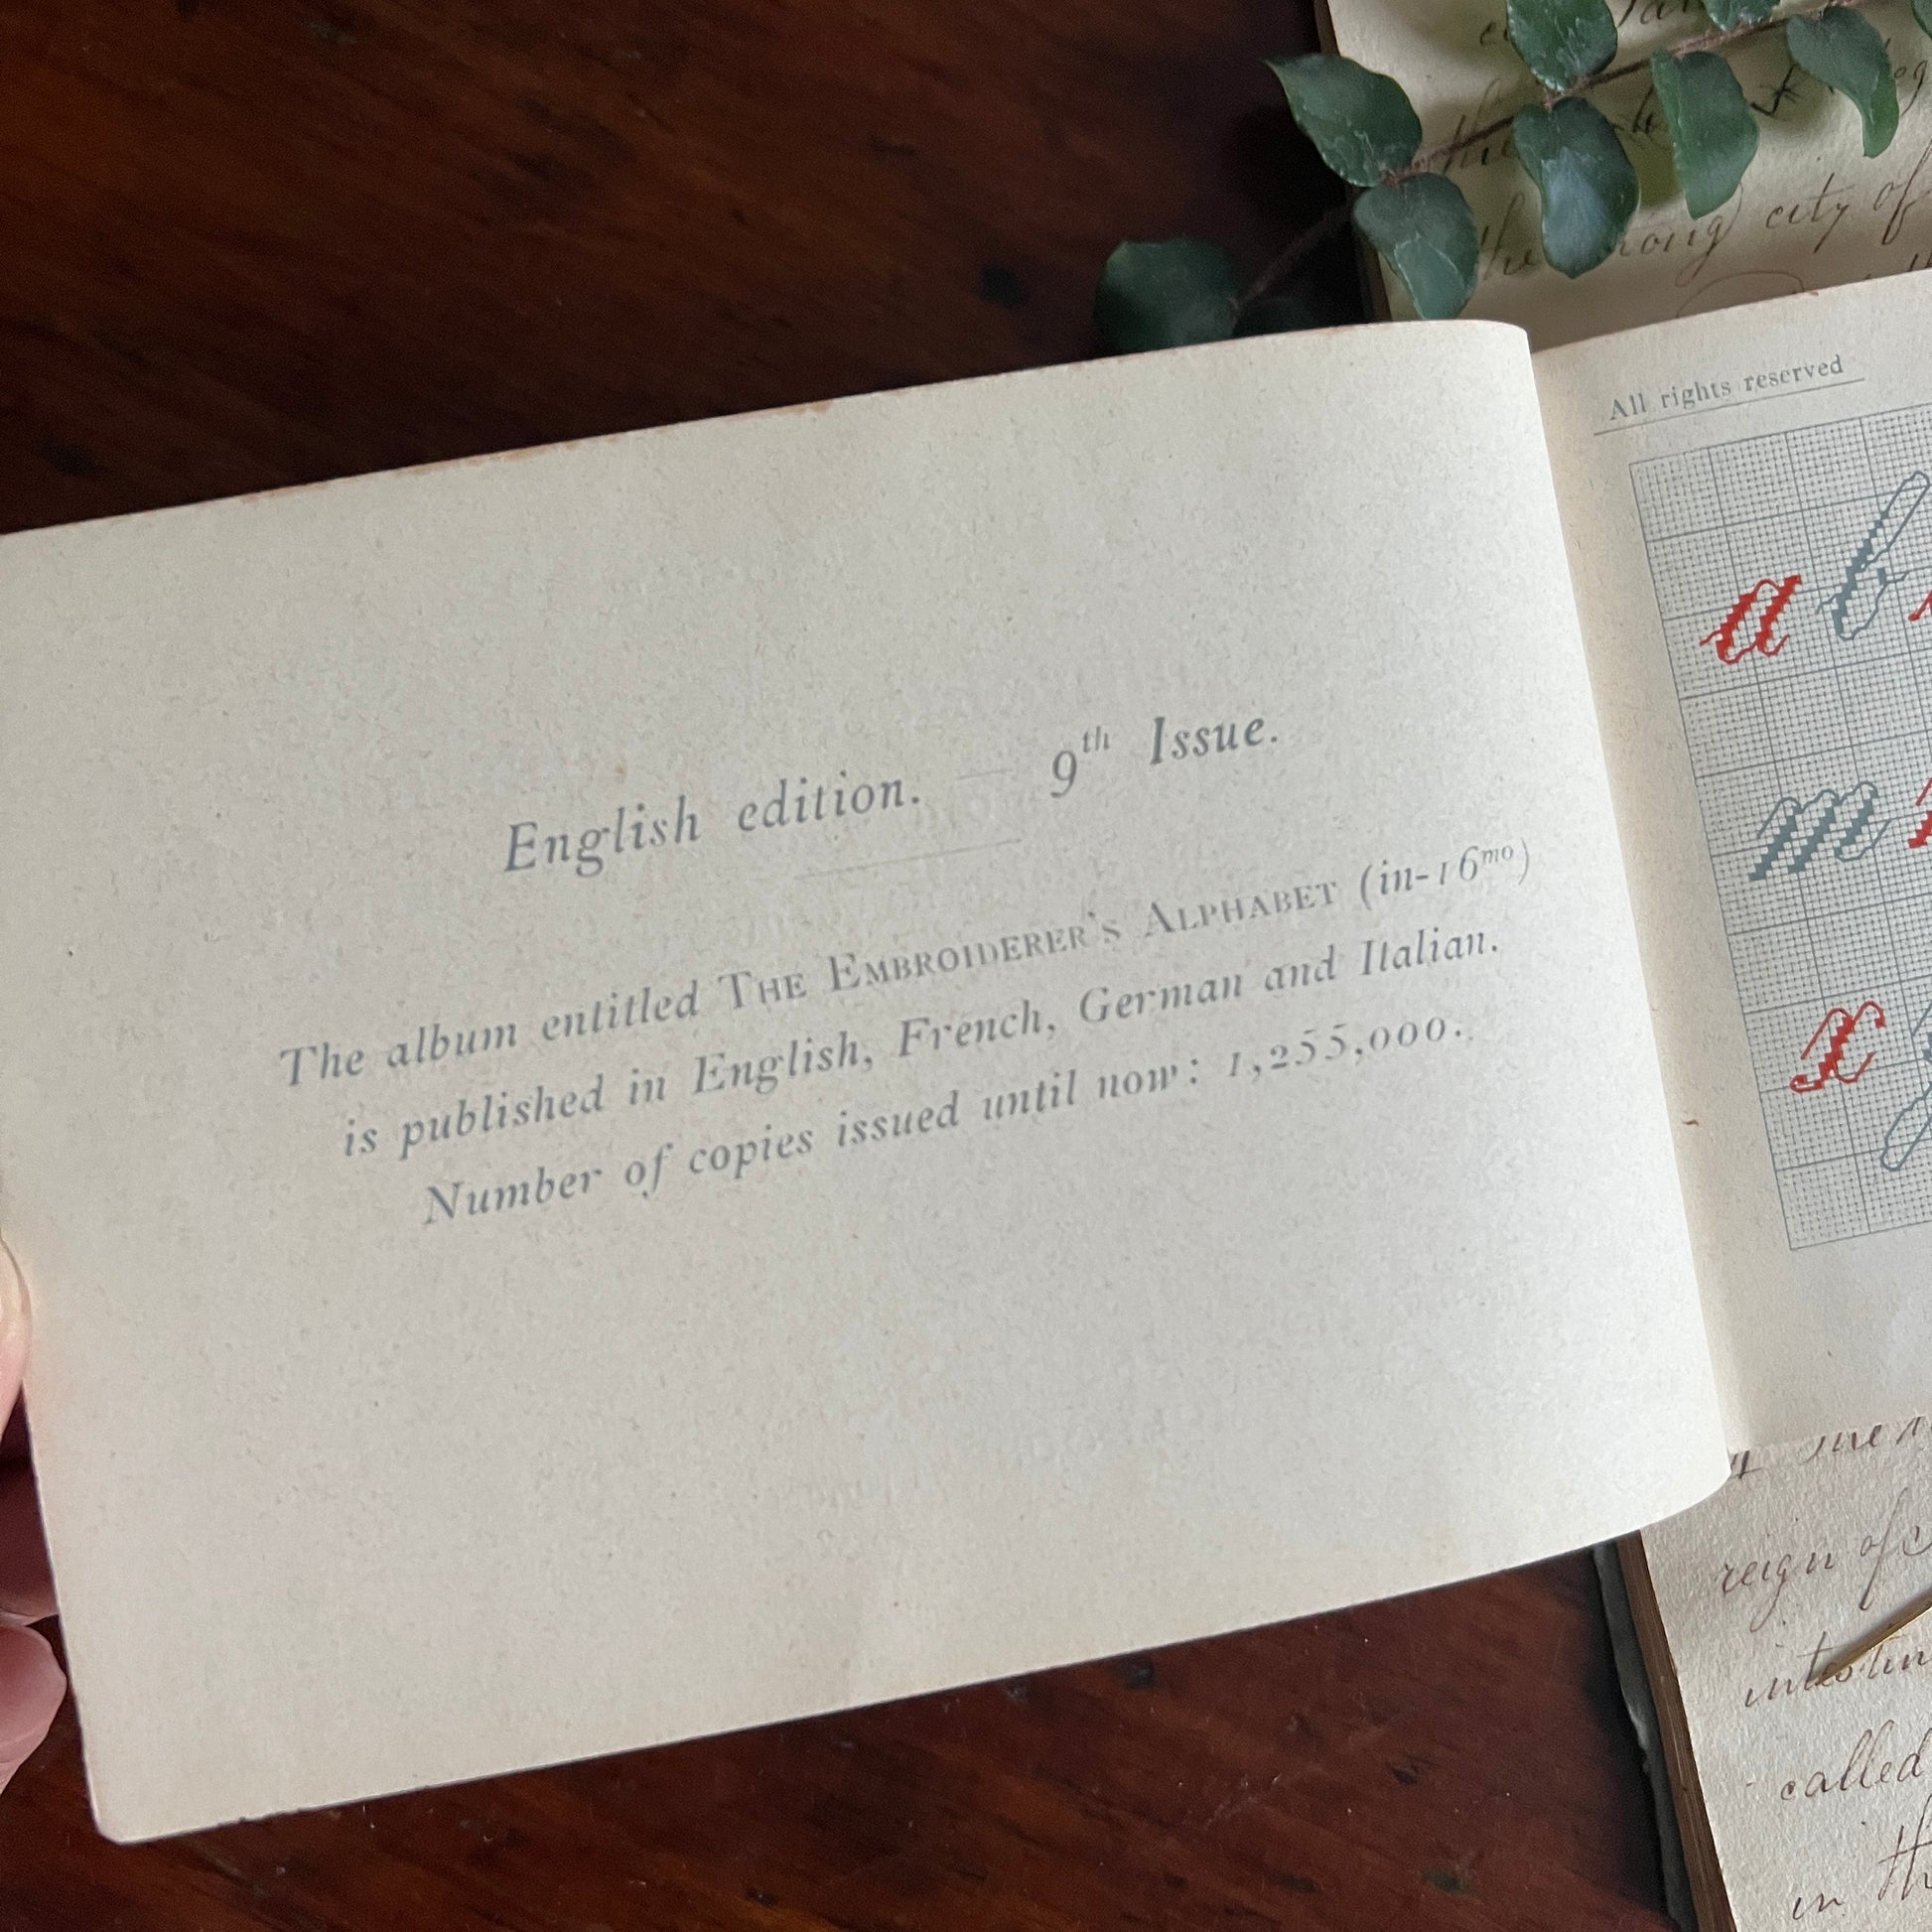 English edition. — 9th Issue.
The album entitled THE EMBROIDERER'S ALPHABET (in-16mo)
is published in English, French, German and Italian.
Number of copies issued until now: 1,255,000.
All rights reserved
a b
m
x
the
the strong city of
reign of
called
in